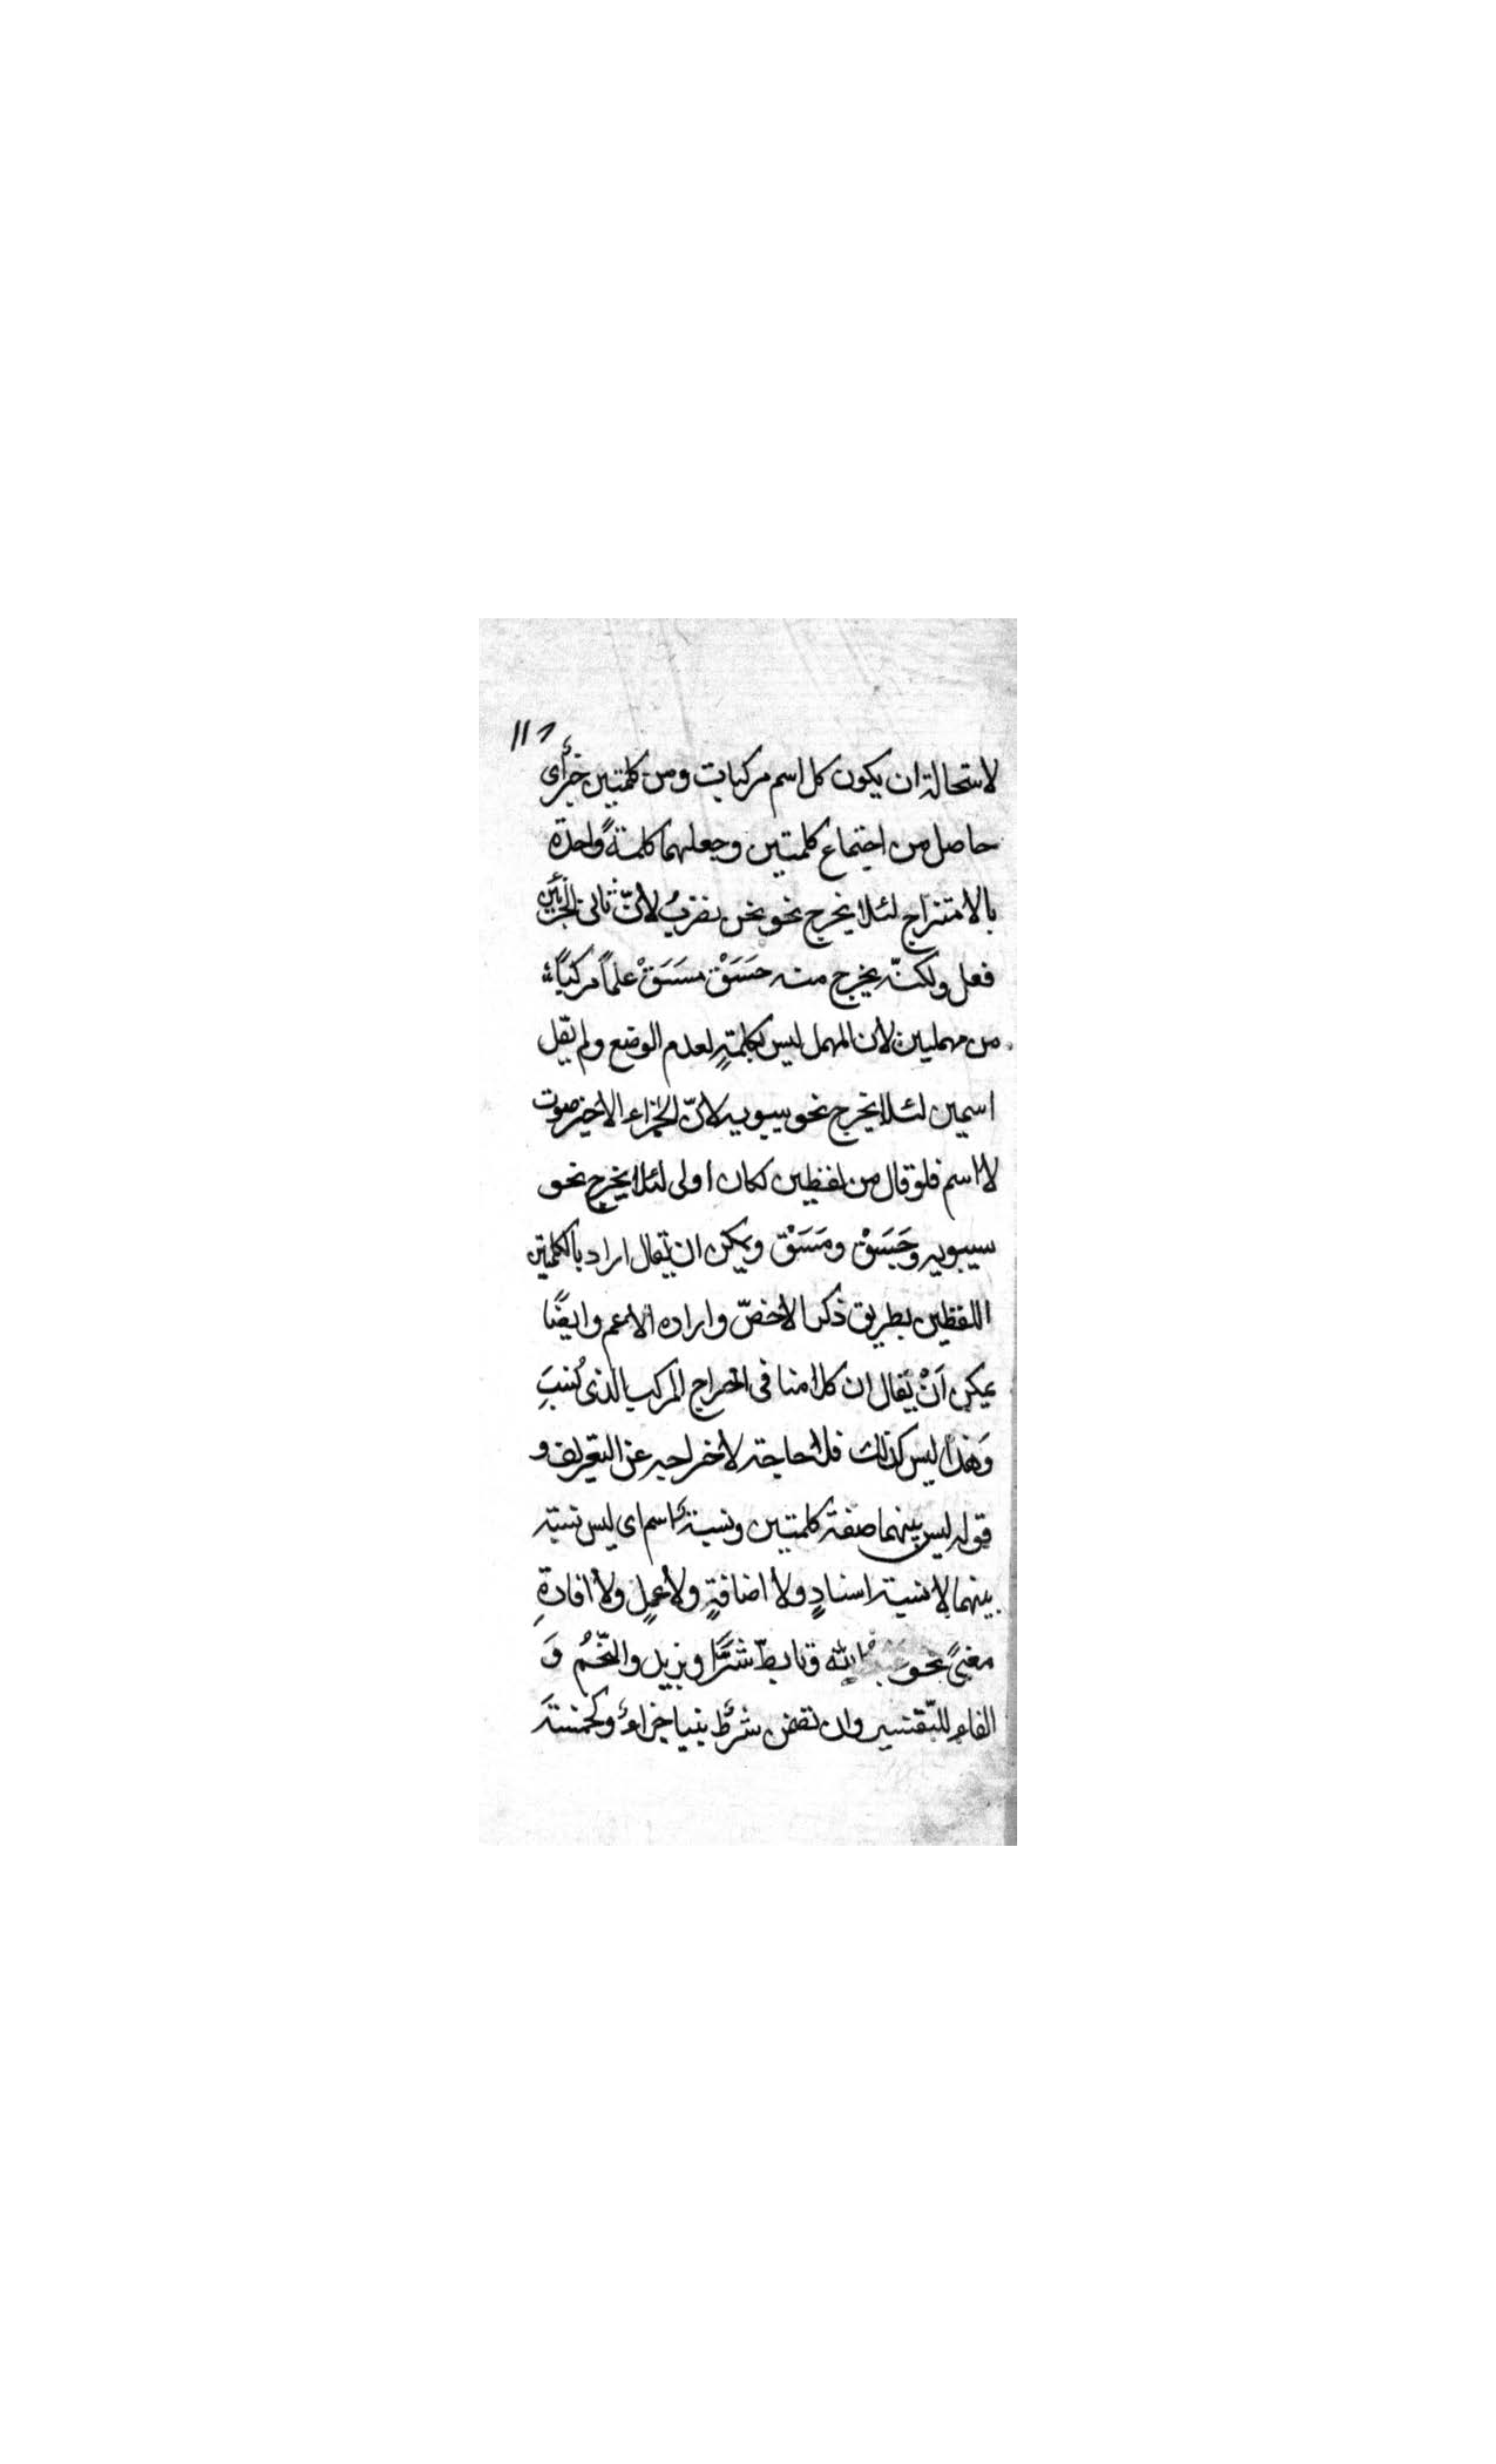 ١١٦
لاستحالة ان يكون كل اسم مركبات ومن كلمتين خبر أى
حاصل من اجتماع كلمتين وجعلهما كلمةً واحدة
بالامتزاج لئلا يخرج نحو نحن نضربُ لأنّ ثانى الجزئين
فعل ولكنّه يخرج منه حَسَسَقْ مَسَسَقْ علماً مركباً
من مهملين لأن المهمل ليس بكلمةٍ لعدم الوضع ولم يقل
اسمين لئلا يخرج نحو سيبويه لانّ الجزاء الاخير صوت
لا اسم فلو قال من لفظين لكان اولى لئلا يخرج نحو
سيبويه و ومَسَسَقْ ويمكن ان يقال اراد بالكلمتين
اللفظين بطريق ذكر الاخصّ واراده الاعم وايضًا
يمكن اَنْ يقال ان كلامنا فى اخراج المركب الذى
وَهَذا ليس كذلك فلا حاجة لاخراجه عن التعريف و
قوله ليس بينهما صفة كلمتين ونسبة اسم اى ليس نسبة
بينهما لا نسبة اسنادٍ ولا اضافةٍ ولا عملٍ ولا افادةِ
معنىً نحو عبد الله وتابطّ شرًّا وبزيد والنّجمُ وَ
الفاء للتّفسير وان شرطٌ جزاءٌ وكخمسةَ